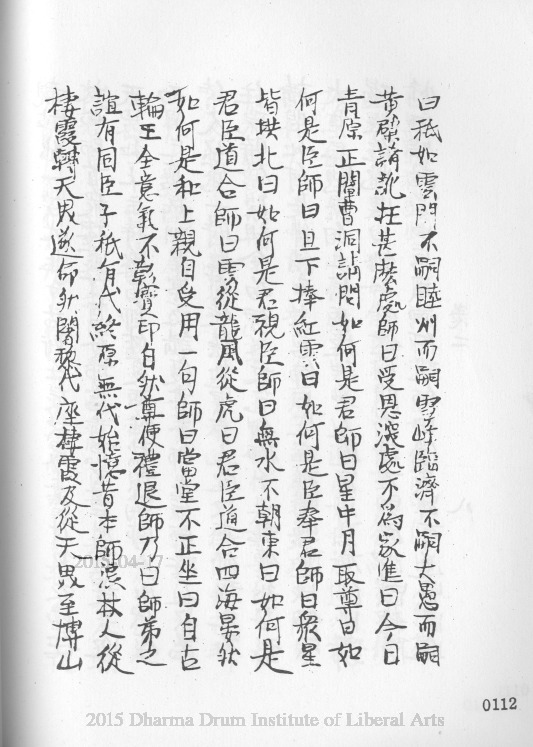 曰秪如雲門不嗣睦州而嗣雪峰臨濟不嗣大愚而嗣
黃檗請訛在甚麼處師曰受恩深處不為家進曰今日
青原正闡曹洞請問如何是君師曰星中月取尊曰如
何是臣師曰旦下捧紅雲曰如何是臣奉君師曰眾星
皆拱北曰如何是君視臣師曰無水不朝東曰如何是
君臣道合師曰雲從龍風從虎曰君臣道合四海晏然
如何是和上親自受用一句師曰當堂不正坐曰自古
輪王全意氣不彰寶印自然尊便禮退師乃曰師弟之
誼有同臣子秪有代終原無代始憶昔本師浪杖人從
棲霞轉天界遂命然闍黎代座棲霞及從天界至博山
2015-04-17
0112
2015 Dharma Drum Institute of Liberal Arts